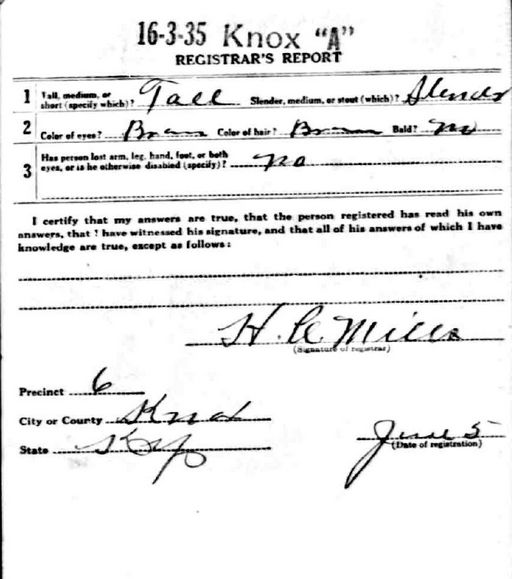 16-3-35 Knox "A"
REGISTRAR'S REPORT
1 Tall, medium, or short (specify which)? Tall Slender, medium, or stout (which)? Slender
2 Color of eyes? Brown Color of hair? Brown Bald? no
3 Has person lost arm, leg, hand, foot, or both eyes, or is he otherwise disabled (specify)? no
I certify that my answers are true, that the person registered has read his own
answers, that I have witnessed his signature, and that all of his answers of which I have
knowledge are true, except as follows:
H. C. Mills
(Signature of registrar)
Precinct 6
City or County Knox
State Ky
June 5
(Date of registration)